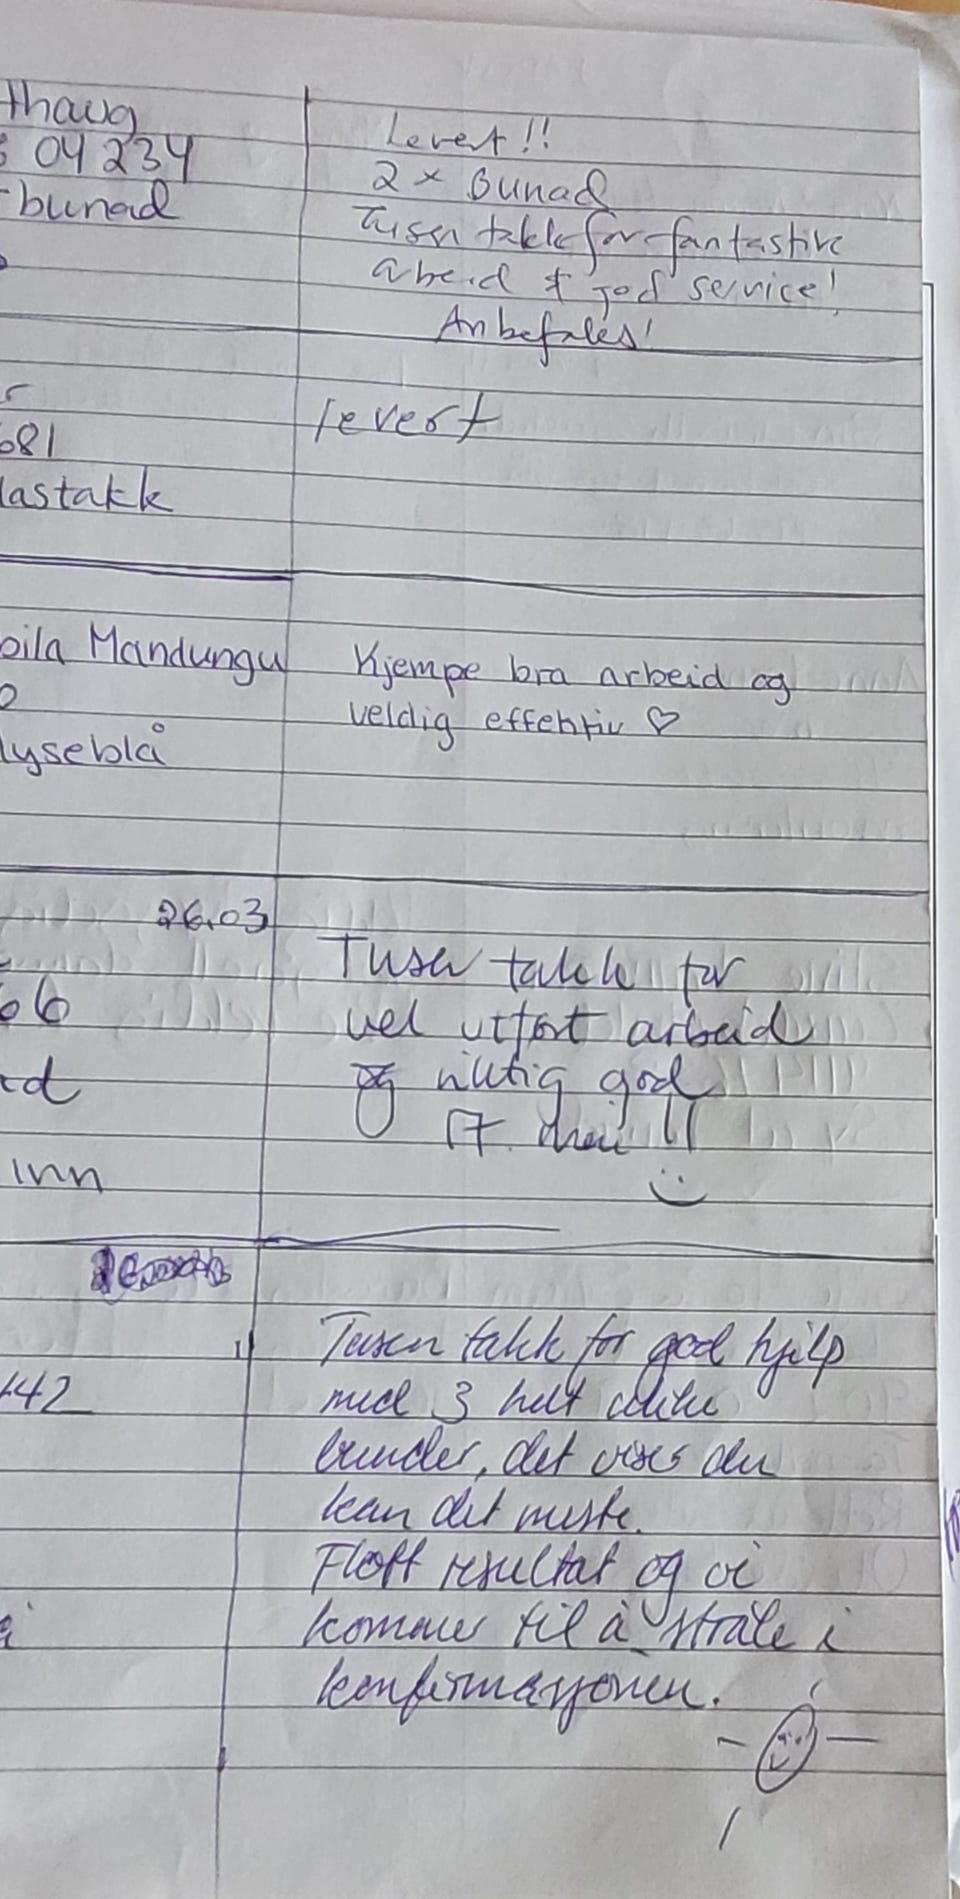 thaug
04234
bunad
Levert!!
2 x Bunad
Tusen takk for fantastisk
abeid & god service!
Anbefales!
681
lastakk
levert
bila Mandungu
lyseblå
Kjempe bra arbeid og
veldig effektiv ♡
26.03
66
rd
inn
Tusen takk for
vel utført arbeid
og riktig god
17. mai !!
442
Tusen takk for god hjelp
med 3 helt ulike
bunader, det vises du
kan det meste.
Flott resultat og vi
kommer til å stråle i
konfirmasjonen.